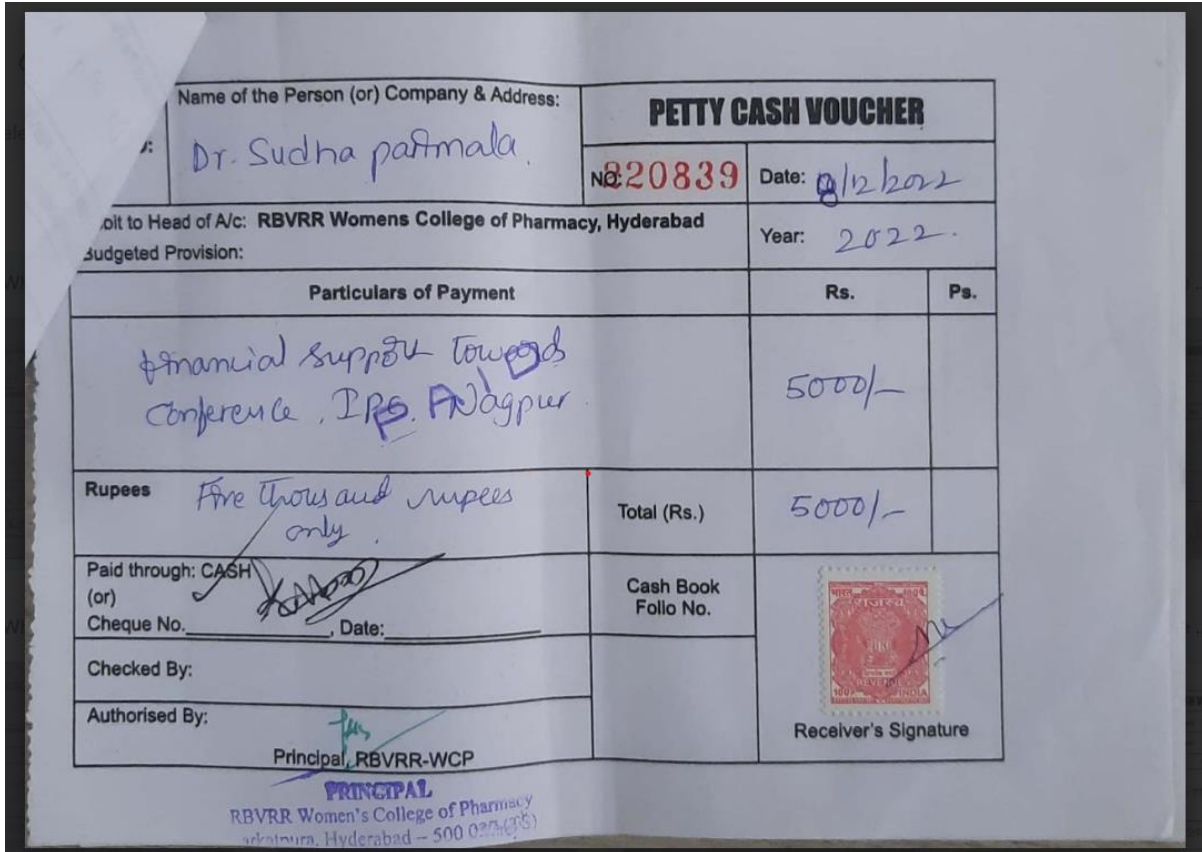 Name of the Person (or) Company & Address:
Dr. Sudha
PETTY CASH VOUCHER
NO: 220839
Date: 8/12/2022
Head of A/c: RBVRR Womens College of Pharmacy, Hyderabad
Budgeted Provision:
Year: 2022.
Particulars of Payment
Rs.
Ps.
financial support towards
conference, Nagpur.
5000/-
Rupees
Five thousand rupees
only.
Total (Rs.)
5000/-
Paid through: CASH
(or)
Cheque No. , Date:
Cash Book
Folio No.
Checked By:
Authorised By:
Principal, RBVRR-WCP
Receiver's Signature
भारत
INDIA
PRINCIPAL
RBVRR Women's College of Pharmacy
Hyderabad – 500